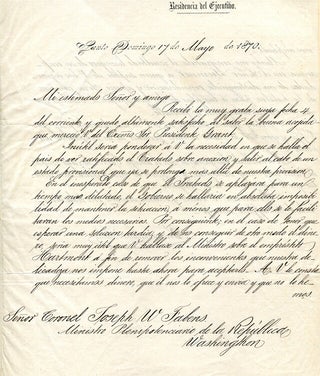 Residencia del Ejecutivo.
Santo Domingo 17 de Mayo de 1870.
Mi estimado Señor y amigo
Recibí la muy grata suya fecha 4
del corriente, y quedo altamente satisfecho al saber la buena acogida
que mereció V. del Exmo Sor. Presidente Grant.
Inútil sería ponderar á V. la necesidad en que se halla el
país de ver ratificado el Tratado sobre anexion, y salir al cabo de un
estado provisional que ya se prolonga mas allá de nuestra prevision.
En el inesperado caso de que el Tratado se aplazara para un
tiempo mas dilatado, el Gobierno se hallaria en absoluta imposibi-
lidad de mantener la situacion, á menos que para ello se le facili-
taran los medios necesarios. Por consiguiente, en el caso de tener que
esperar una solucion tardía, y de no conseguir de otro modo el dine-
ro, seria muy útil que V. hablara al Ministro sobre el empréstito
Hartmont á fin de remover los inconvenientes que nuestra de-
licadeza nos impone hasta ahora para aceptarlo. A V. le consta
que necesitamos dinero, que el nos lo ofrece y envia y que no lo he-
mos
Señor Coronel Joseph W. Fabens
Ministro Plenipotenciario de la República
Washington